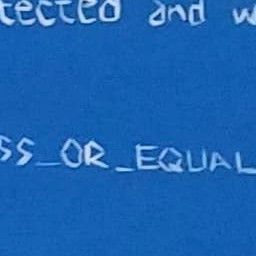 tected and w
SS_OR_EQUAL